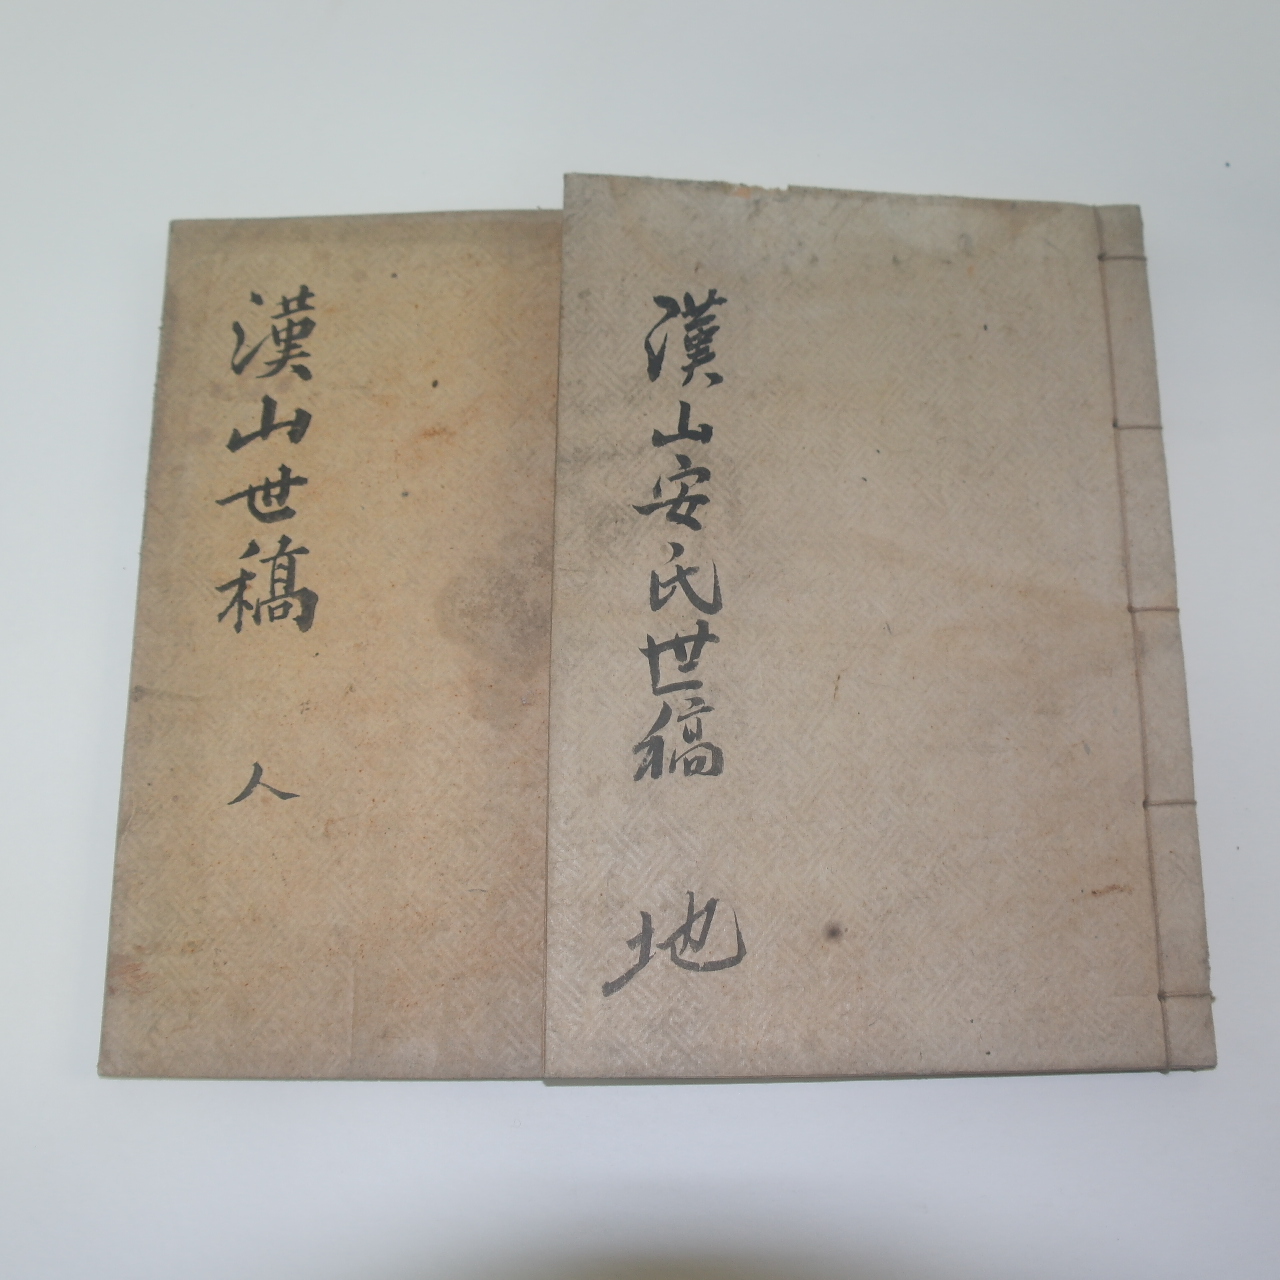 漢山安氏世稿 地
漢山世稿 人